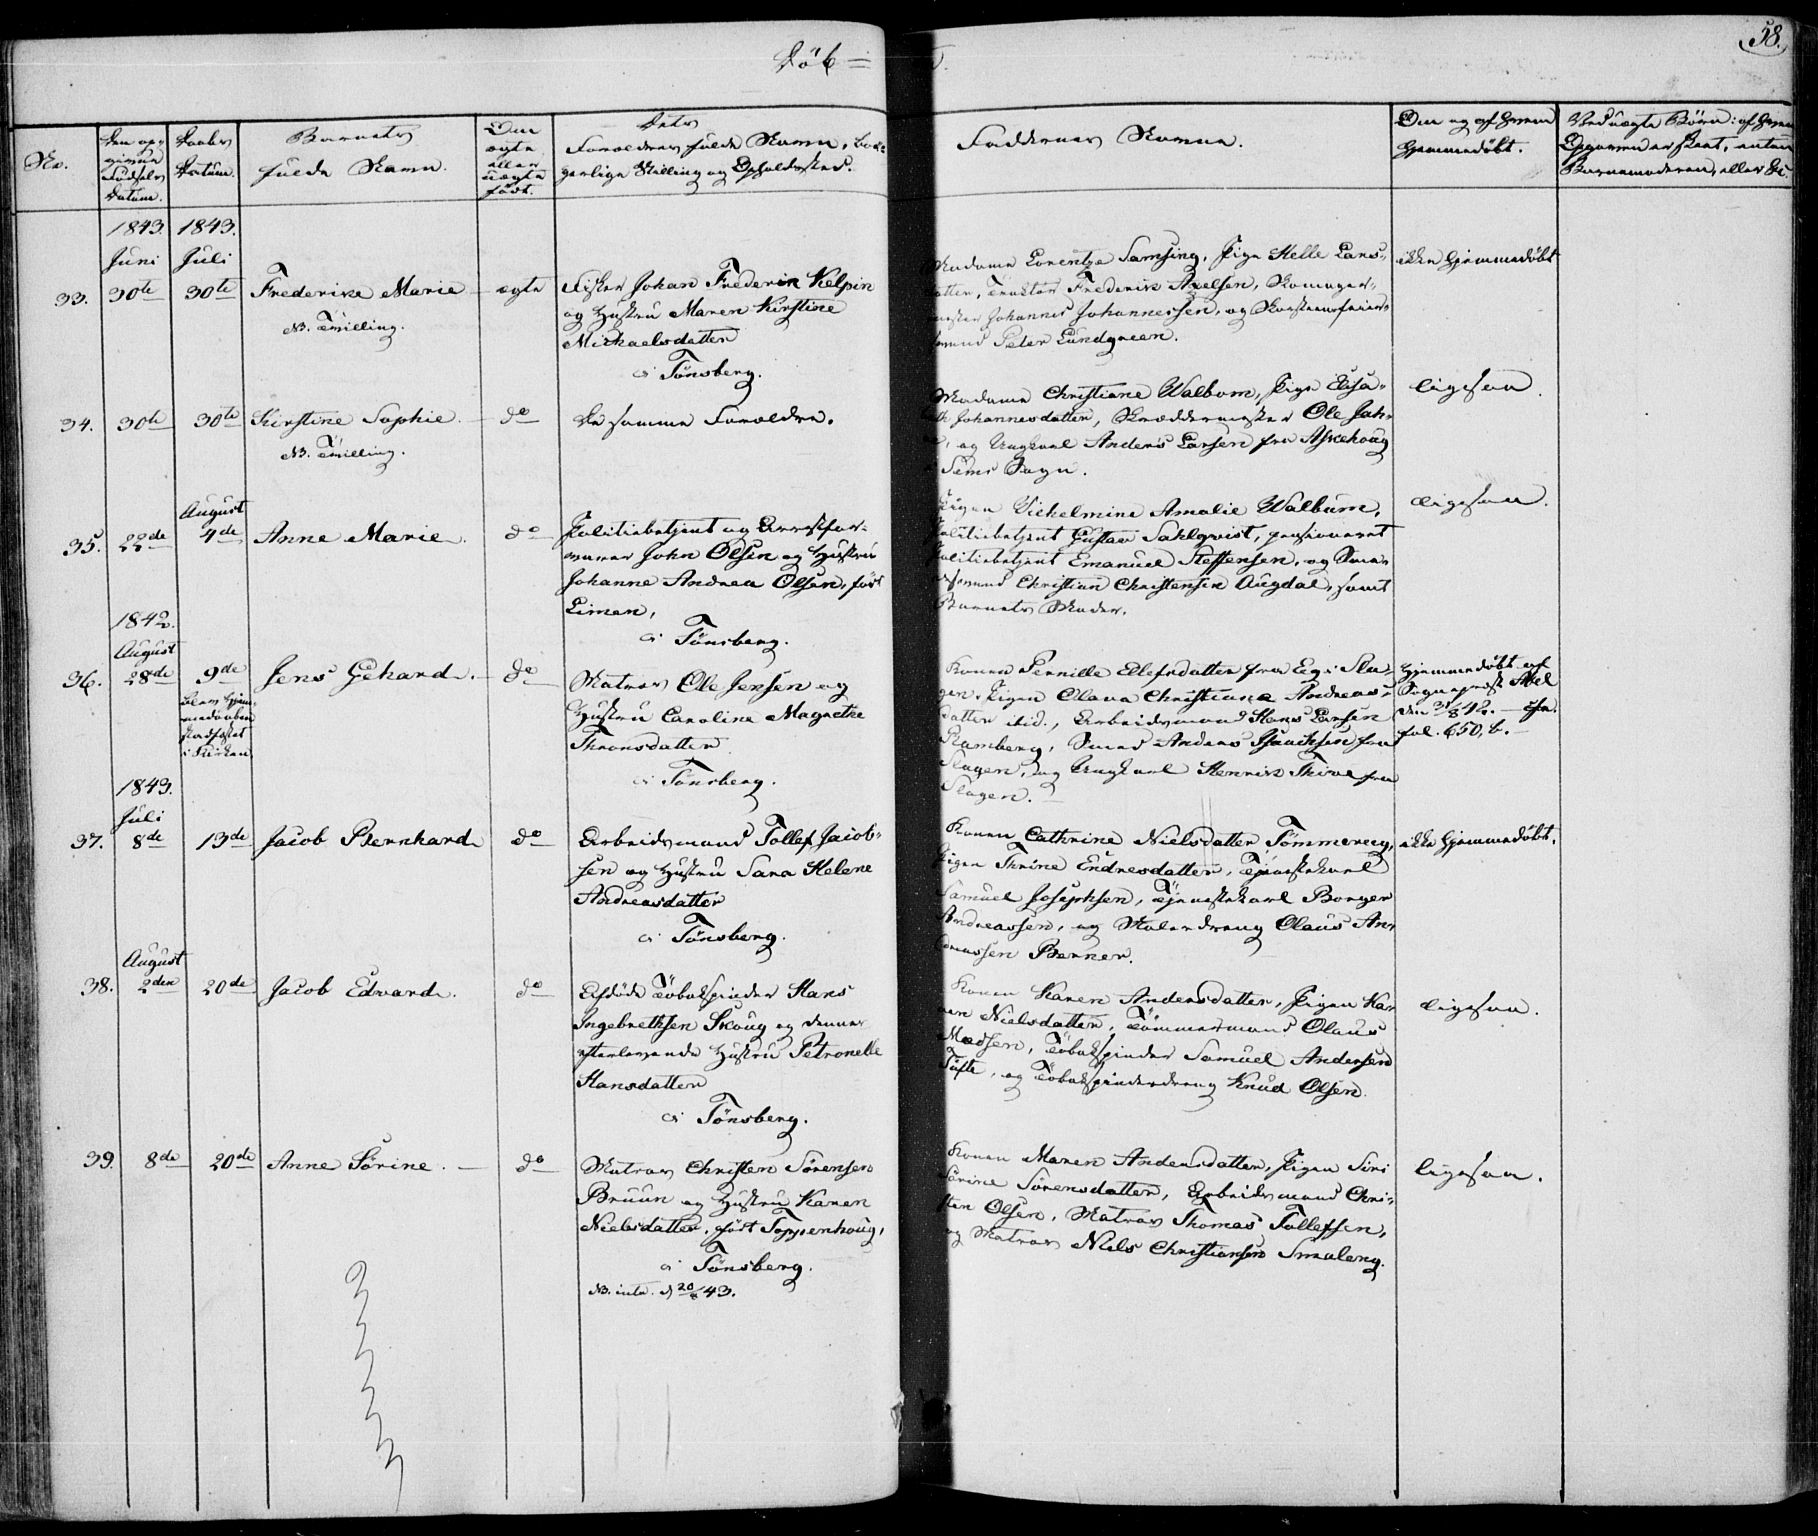 58.
Döb =
No.
Den op-
givne
Födsels
Datum.
Daabs
Datum.
Barnets
fulde Navn.
Om
ægte
eller
uægte
födt.
Dets
Forældres fulde Navn, bor-
gerlige Stilling og Opholdssted.
Faddernes Navne.
Om og af hvem
hjemmedöbt.
Ved uægte Börn: af hvem
Opgaven er skeet, enten
Barnemoderen, eller
1843. 1843.
Juni Juli
33. 30te 30te Frederike Marie ægte
NB. Tvilling.
Fisker Johan Frederik Kolpin
og Hustru Maren Kirstine
Michaelsdatter
i Tönsberg.
Madame Lorentze Samsing, Pige Helle Lars-
datter, Fredrik Axelsen, Skomager-
mester Johannes Johannessen, og Skorsteensfeier-
svend Peter Lundgreen.
ikke hjemmedöbt
34. 30te 30te Kirstine Sophie. do
NB. Tvilling.
De samme Forældre.
Madame Christiane Walbom, Pige Elisa-
beth Johannesdatter, Skræddermester Ole Jahr-
, og Ungkarl Anders Larsen fra Askehoug
i Sems Sogn.
ligesaa.
August
35. 22de 4de Anne Marie. do
Politiebetjent og Arrestfor-
varer John Olsen og Hustru
Johanne Andrea Olsen, födt
Limen,
i Tönsberg.
Pigen Vilhelmine Amalie Walbum,
Politiebetjent Gustav Sahlqvist, pensioneret
Politiebetjent Emanuel Steffensen, og Smee-
desvend Christian Christensen Augdal, samt
Barnets Moder.
ligesaa.
1842.
August
36. 28de 9de Jens Gehard. do
blev Hjem-
medaaben
stadfæstet
i Kirken
Matros Ole Jensen og
Hustru Caroline Magrethe
Thronsdatter
i Tönsberg.
Konen Pernille Ellefsdatter fra Eeg i Sla-
gen, Pigen Olava Christiane Andreas-
datter ibid., Arbeidsmand Hans Larsen
Ramberg, Smed Anders Isachsen fra
Slagen, og Ungkarl Henrik Thive fra
Slagen.
Hjemmedöbt af
Sognepræst Abel
den 31/8 42. — cfr.
fol. 650, b. —
1843.
Juli
37. 8de 13de Jacob Bernhard do
Arbeidsmand Tollef Jacob-
sen og Hustru Sara Helene
Andreasdatter
i Tönsberg.
Konen Cathrine Nielsdatter Tömmereeg,
Pigen Thrine Endresdatter, Tjenestekarl
Samuel Josephsen, Tjenestekarl Borger
Andreassen, og Malerdreng Olaus An-
dreassen Berner.
ikke hjemmedöbt.
August
38. 2den 20de Jacob Edvard. do
Afdöde Tobakspinder Hans
Ingebrethsen Skoug og dennes
efterlevende Hustru Petronelle
Hansdatter
i Tönsberg.
Konen Karen Andersdatter, Pigen Ka-
ren Nielsdatter, Tömmermand Olaus
Madsen, Tobakspinder Samuel Andersen
Tufte, og Tobakspinderdreng Knud Olsen.
ligesaa.
39. 8de 20de Anne Sörine. do
Matros Christen Sörensen
Bruun og Hustru Karen
Nielsdatter, födt Toppenhoug,
i Tönsberg.
NB. intr. d 20/8 43.
Konen Maren Andersdatter, Pigen Siri
Sörine Sörensdatter, Arbeidsmand Chri-
sten Olsen, Matros Thomas Tollefsen,
og Matros Niels Christiansen Smaleng.
ligesaa.